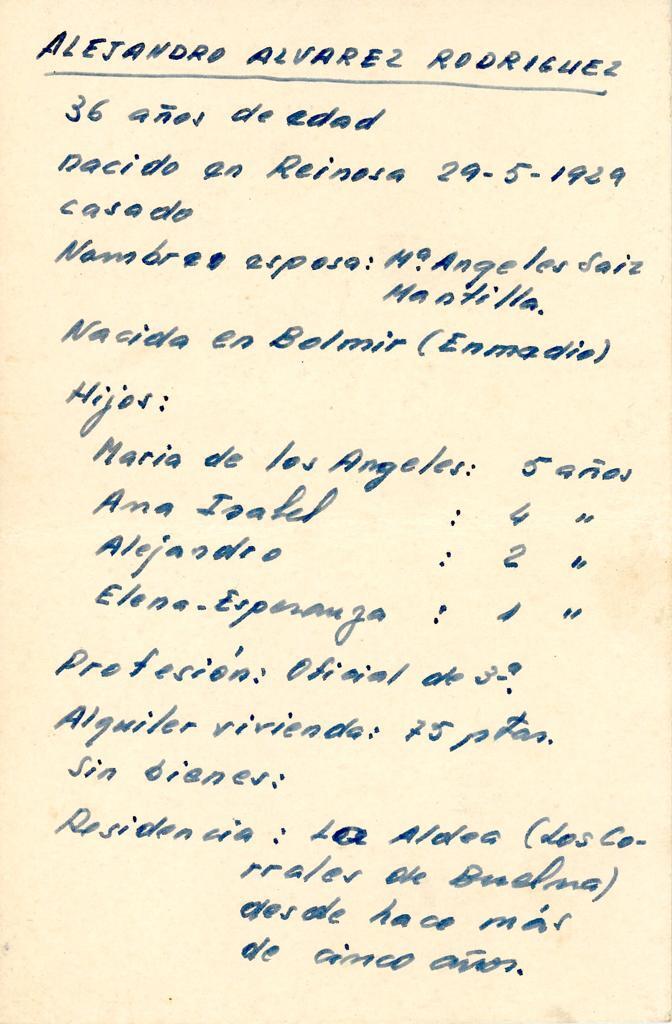 ALEJANDRO ALVAREZ RODRIGUEZ
36 años de edad
nacido en Reinosa 29-5-1929
casado
Nombre esposa: Mª Angeles Saiz
Mantilla.
Nacida en Bolmir (Enmedio)
Hijos:
Maria de los Angeles: 5 años
Ana Isabel : 4 "
Alejandro : 2 "
Elena-Esperanza : 1 "
Profesión: Oficial de 3ª
Alquiler vivienda: 75 ptas.
Sin bienes:
Residencia: La Aldea (Los Co-
rrales de Buelna)
desde hace más
de cinco años.